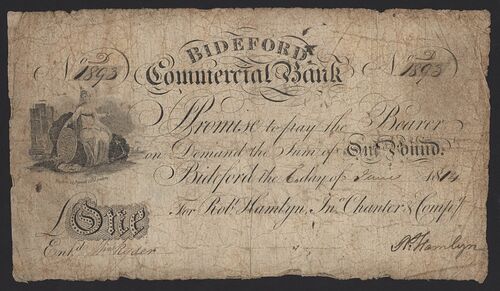 BIDEFORD
Commercial Bank
No 1893
No 1893
I Promise to pay the Bearer
on Demand the Sum of One Pound.
Bideford the 6 day of June 1814
For Robt. Hamlyn, Jno. Chanter & Compy.
£ One
Entd. Ryder
R Hamlyn